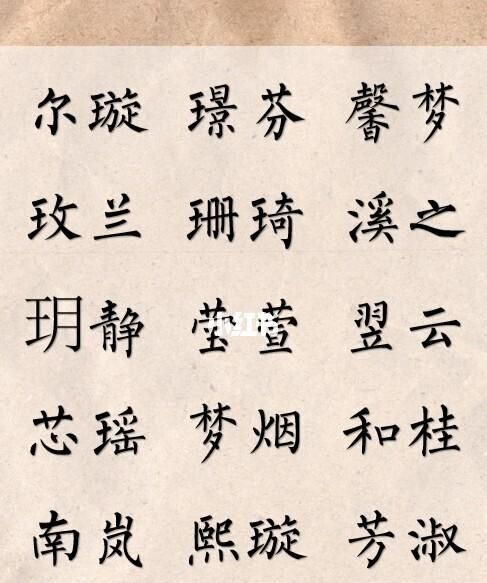 尔璇 璟芬 馨梦
玫兰 珊琦 溪之
玥静 莹萱 翌云
小红书
芯瑶 梦烟 和桂
南岚 熙璇 芳淑